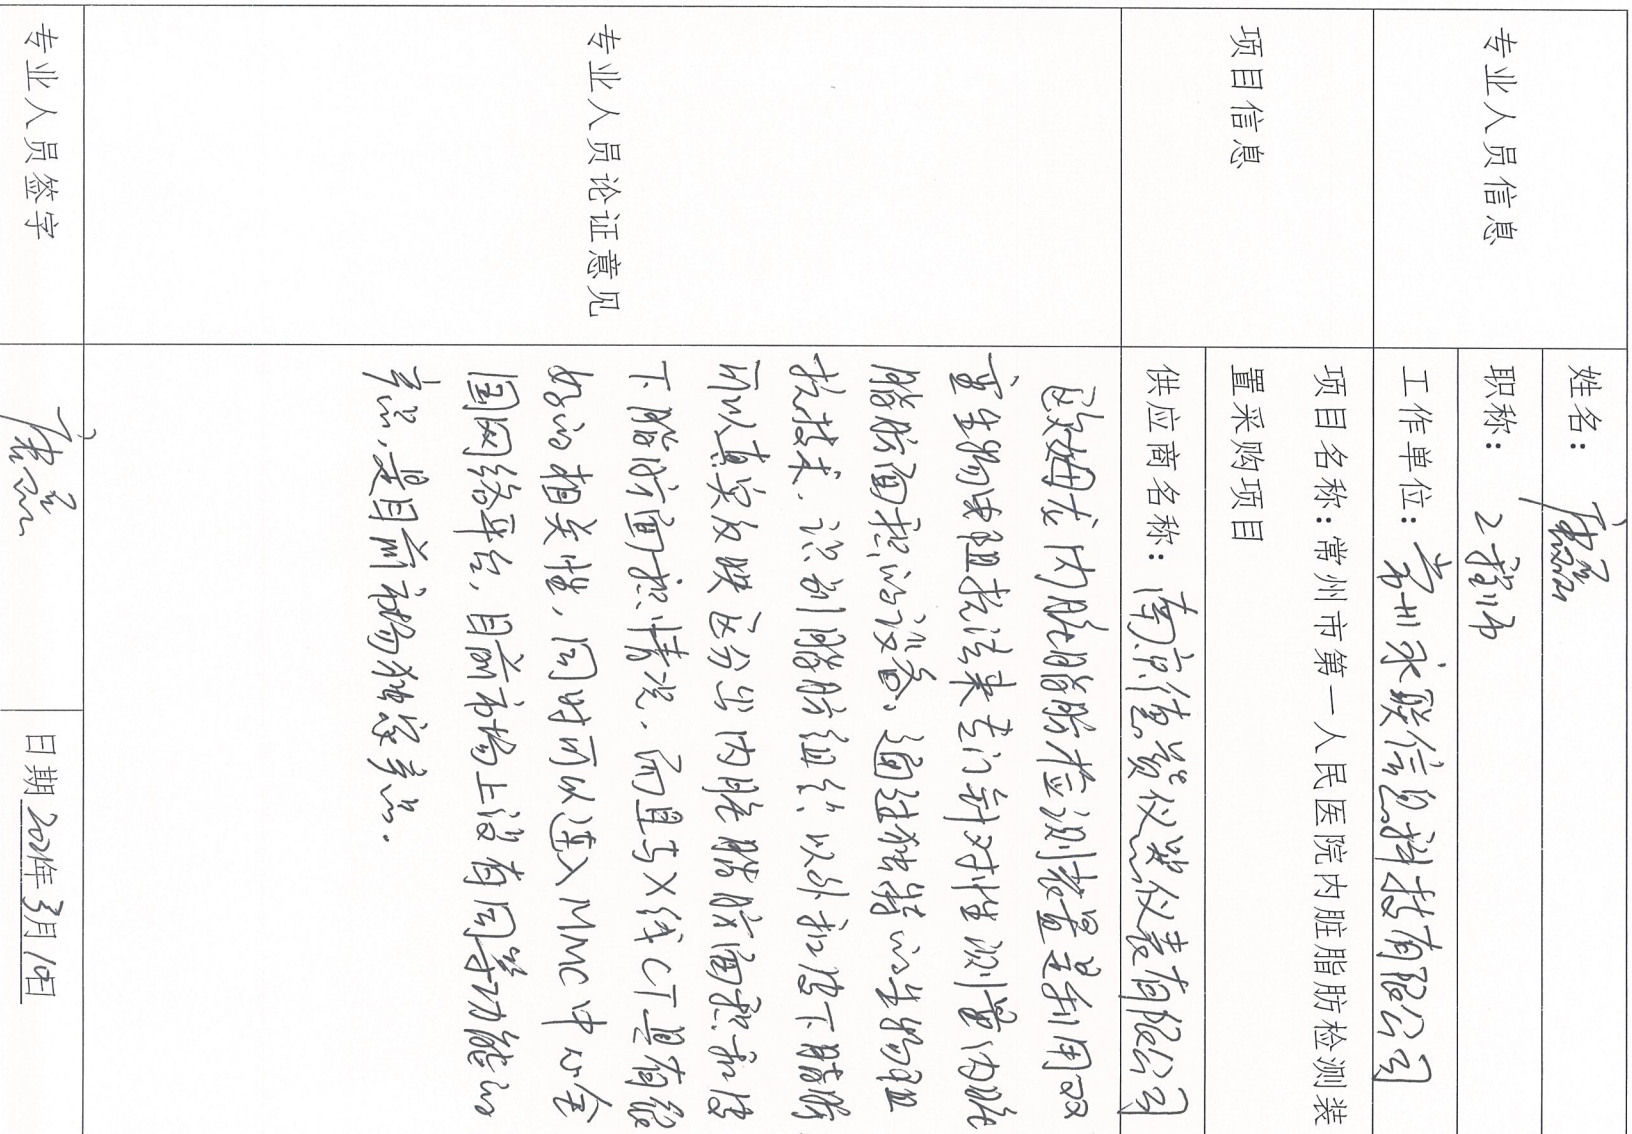 专业人员信息
姓名：唐磊
职称：工程师
工作单位：常州永联信息科技有限公司
项目信息
项目名称：常州市第一人民医院内脏脂肪检测装
置采购项目
供应商名称：南京信贺仪器仪表有限公司
专业人员论证意见
欧姆龙内脏脂肪检测装置是利用双
重生物电阻抗法来专门针对性测量内脏
脂肪面积的设备。通过独特的生物阻
抗技术，识别脂肪组织以外和皮下脂肪
可以真实反映区分出内脏脂肪面积和皮
下脂肪面积情况，而且与X线CT具有很
好的相关性，同时可以连入MMC中心全
国网络平台，目前市场上没有同等功能的
产品，是目前市场独家产品。
专业人员签字
唐磊
日期 2021年3月10日